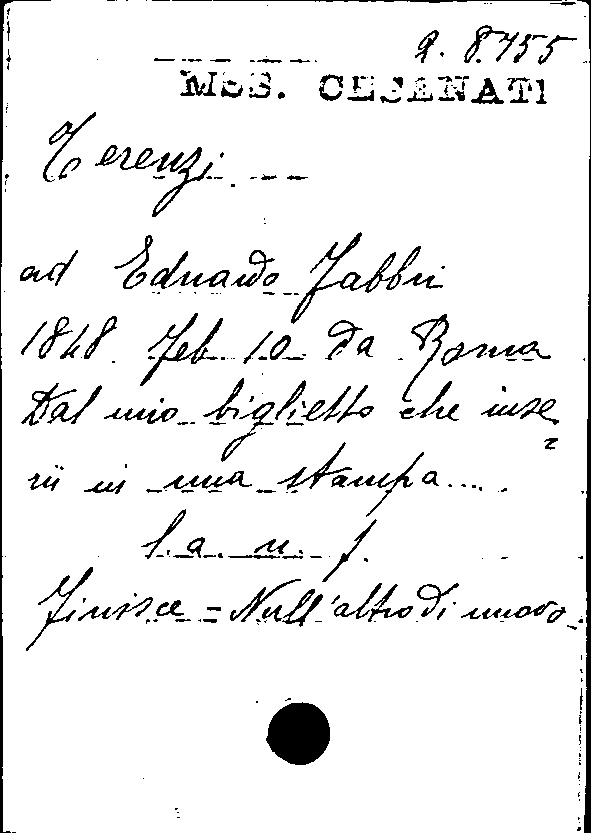 2. 8.755
MSS. CESENATI
Terenzi
ad Eduardo Fabbri
1848 Feb 10 da Roma
Dal mio biglietto che inse=
rii in una stampa....
l. a. n. f.
Finisce = Null'altro di nuovo.